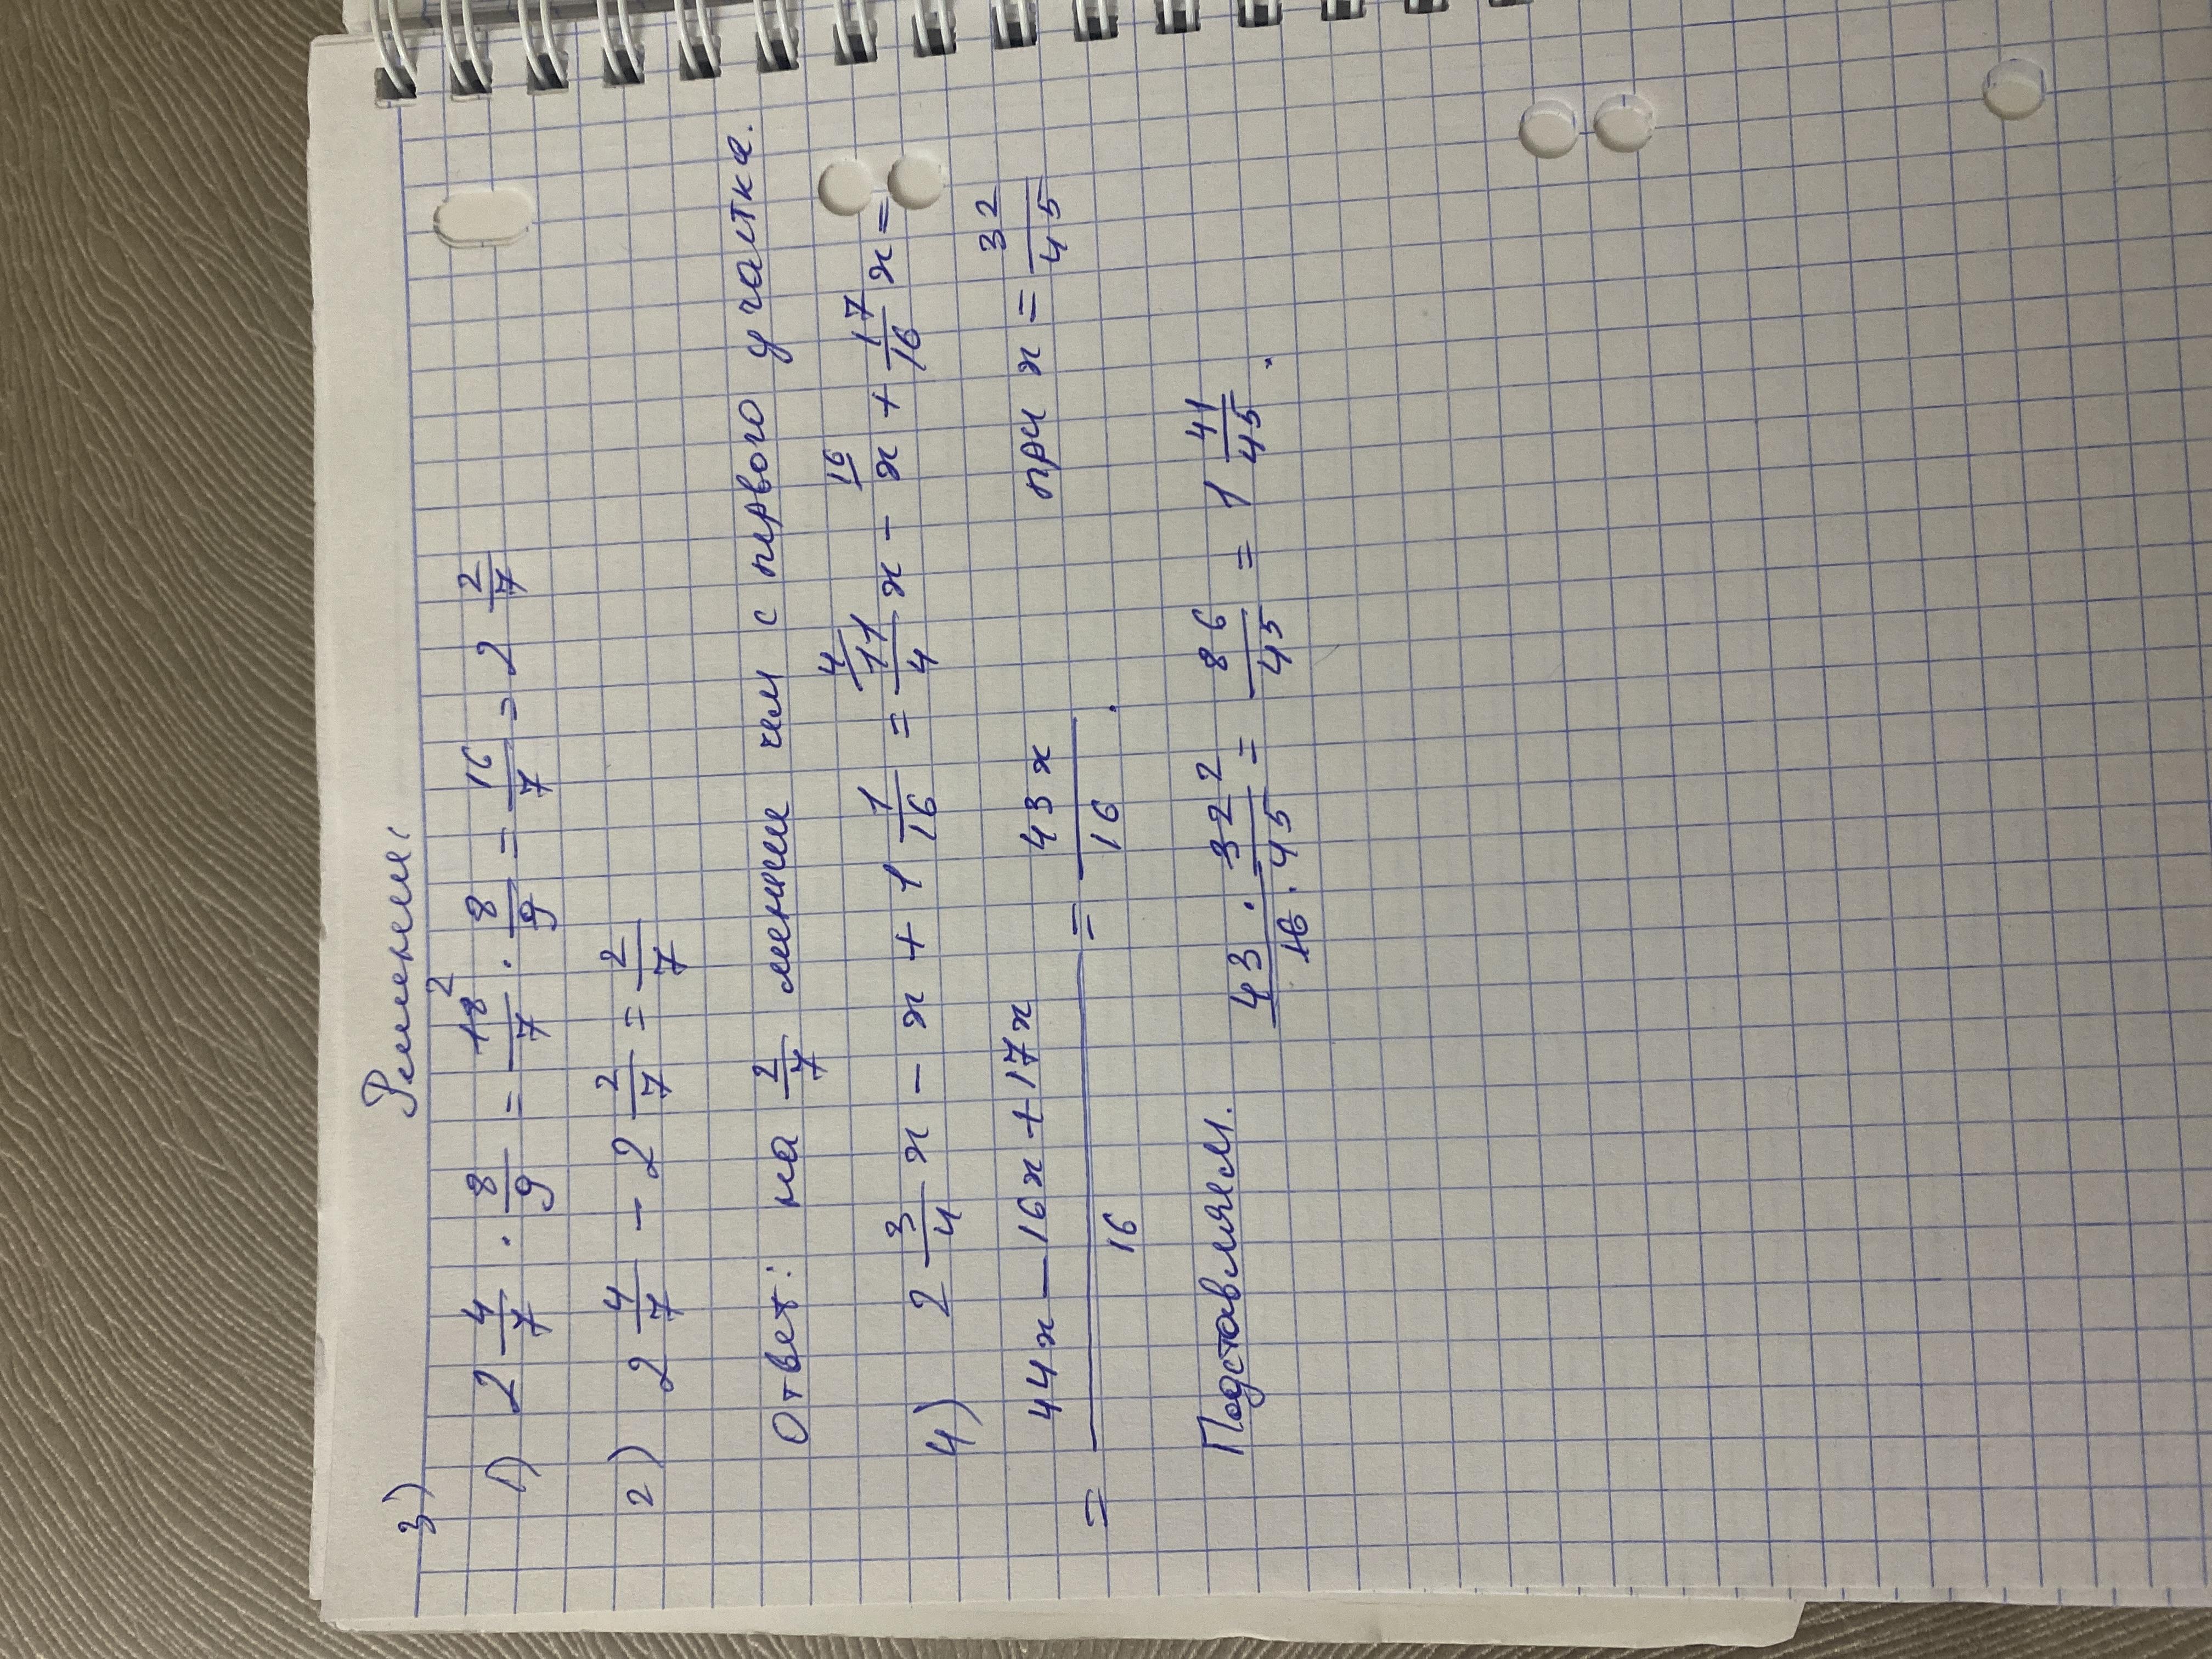 3) Решение:
1) 2 4/7 · 8/9 = 18/7 2 · 8/9 = 16/7 = 2 2/7
2) 2 4/7 - 2 2/7 = 2/7
Ответ: на 2/7 меньше чем с первого участка.
4) 2 3/4 x - x + 1 1/16 = 4/ 11/4 x - 16/ x + 17/16 x =
= (44x - 16x + 17x)/16 = 43x/16 . при x = 32/45
Подставляем. (43 · 32 2)/(16 · 45) = 86/45 = 1 41/45 .